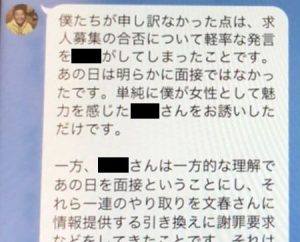 僕たちが申し訳なかった点は、求
人募集の合否について軽率な発言
を がしてしまったことです。
あの日は明らかに面接ではなかっ
たです。単純に僕が女性として魅
力を感じた さんをお誘いした
だけです。
一方、 さんは一方的な理解で
あの日を面接ということにし、そ
れら一連のやり取りを文春さんに
情報提供する引き換えに謝罪要求
などをしてきたことです。それは